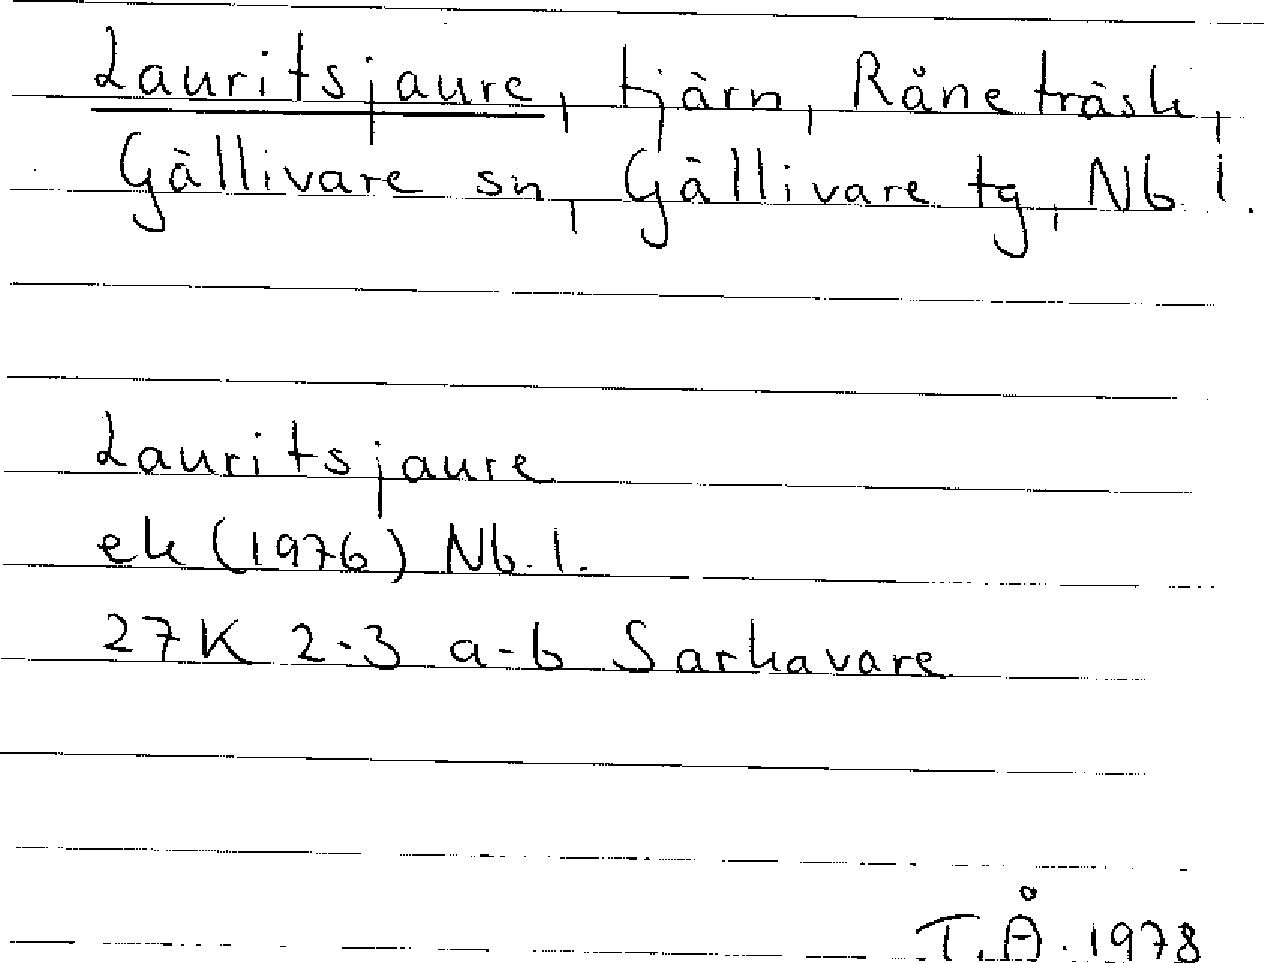 Lauritsjaure, tjärn, Råneträsk,
Gällivare sn, Gällivare tg, Nb. l.
Lauritsjaure
ek (1976) Nb. l.
27K 2-3 a-b Sarkavare
T.Å. 1978